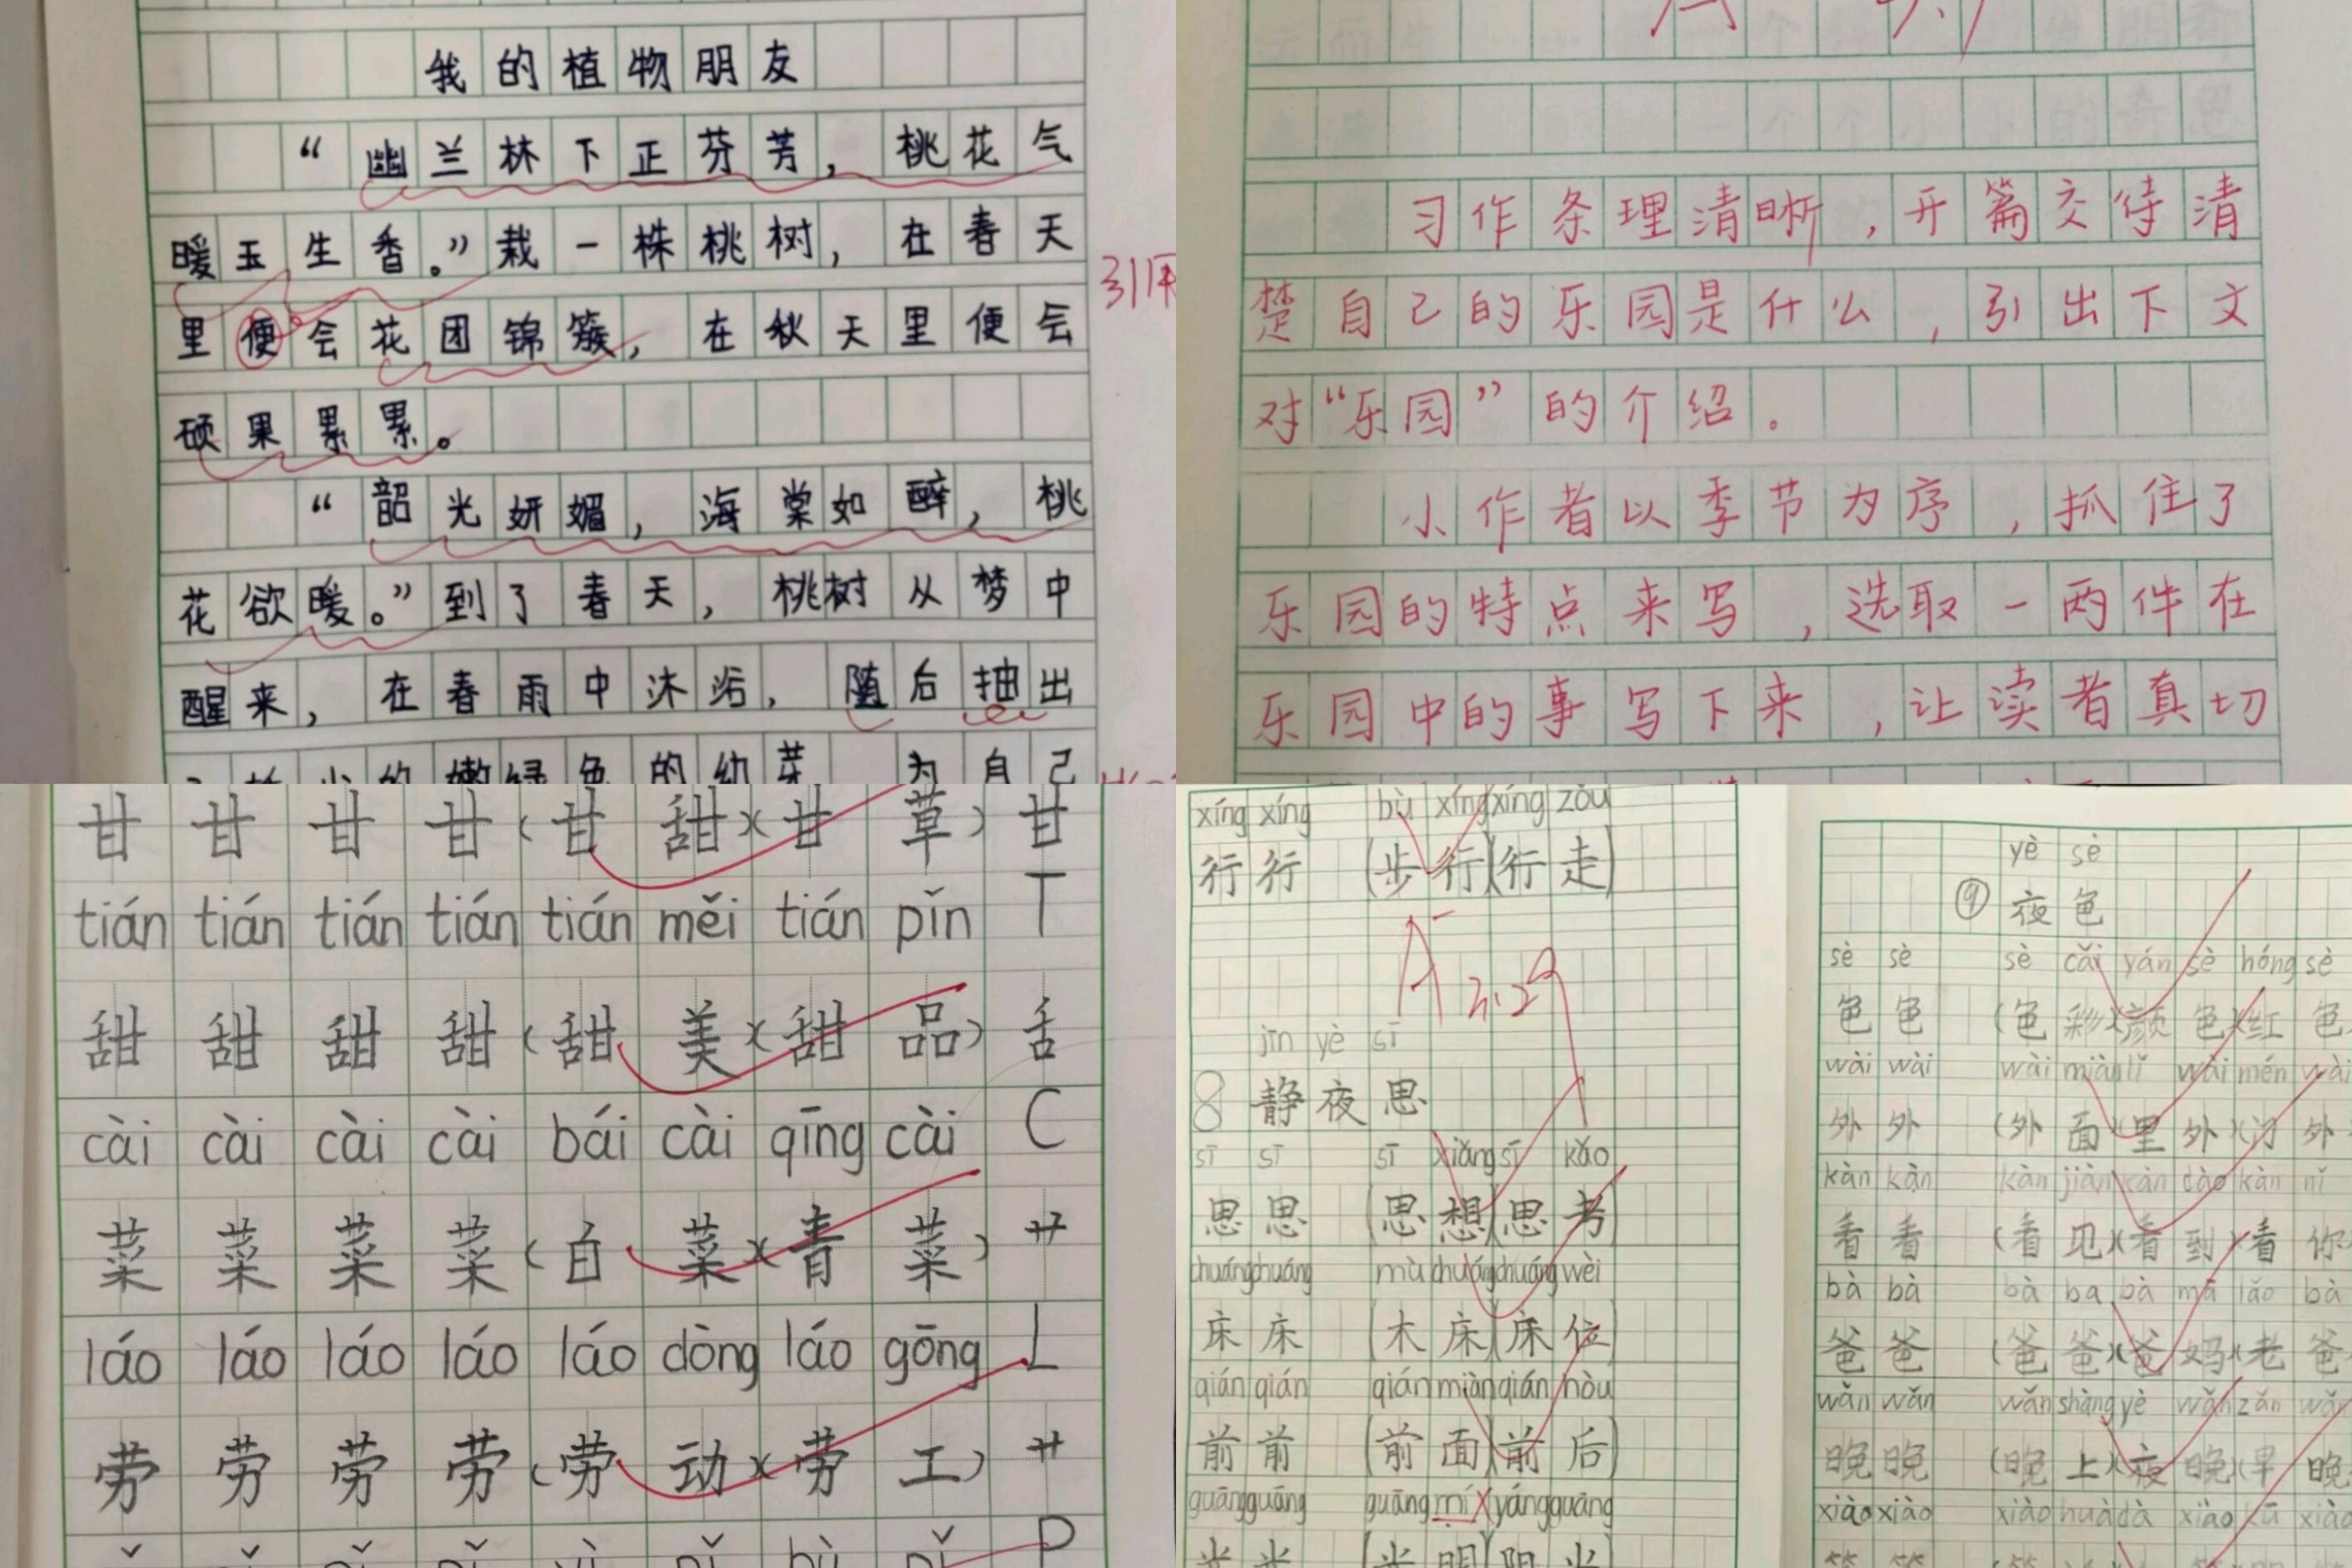 我的植物朋友
“幽兰林下正芬芳，桃花气
暖玉生香。”栽一株桃树，在春天
里便会花团锦簇，在秋天里便会
硕果累累。
“韶光妍媚，海棠如醉，桃
花欲暖。”到了春天，桃树从梦中
醒来，在春雨中沐浴，随后抽出
小的嫩绿色的幼芽 为自己
引用
习作条理清晰，开篇交待清
楚自己的乐园是什么，引出下文
对“乐园”的介绍。
小作者以季节为序，抓住了
乐园的特点来写，选取一两件在
乐园中的事写下来，让读者真切
甘甘甘甘(甘甜)(甘草)甘
tián tián tián tián tián měi tián pǐn T
甜甜甜甜(甜美)(甜品)舌
cài cài cài cài bái cài qīng cài C
菜菜菜菜(白菜)(青菜)艹
láo láo láo láo láo dòng láo gōng L
劳劳劳劳(劳动)(劳工)艹
P
xíng xíng bù xíng xíng zǒu
行行(步行)(行走)
A-
jìn yè sī
8 静夜思
sī sī sī xiǎng sī kǎo
思思(思想)(思考)
chuáng chuáng mù chuáng chuáng wèi
床床(木床)(床位)
qián qián qián miàn qián hòu
前前(前面)(前后)
guāng guāng guāng mí yáng guāng
光光(光明)(阳光
yè sè
⑨夜色
sè sè sè cǎi yán sè hóng sè
色色(色彩)(颜色)(红色
wài wài wài miàn lǐ wài mén wài
外外(外面)(里外)(门外
kàn kàn kàn jiàn kàn dào kàn nǐ
看看(看见)(看到)(看你
bà bà bà ba bà mā lǎo bà
爸爸(爸爸)(爸妈)(老爸
wǎn wǎn wǎn shàng yè wǎn zǎn wǎn
晚晚(晚上)(夜晚)(早晚
xiào xiào xiào huà dà xiào kū xiào